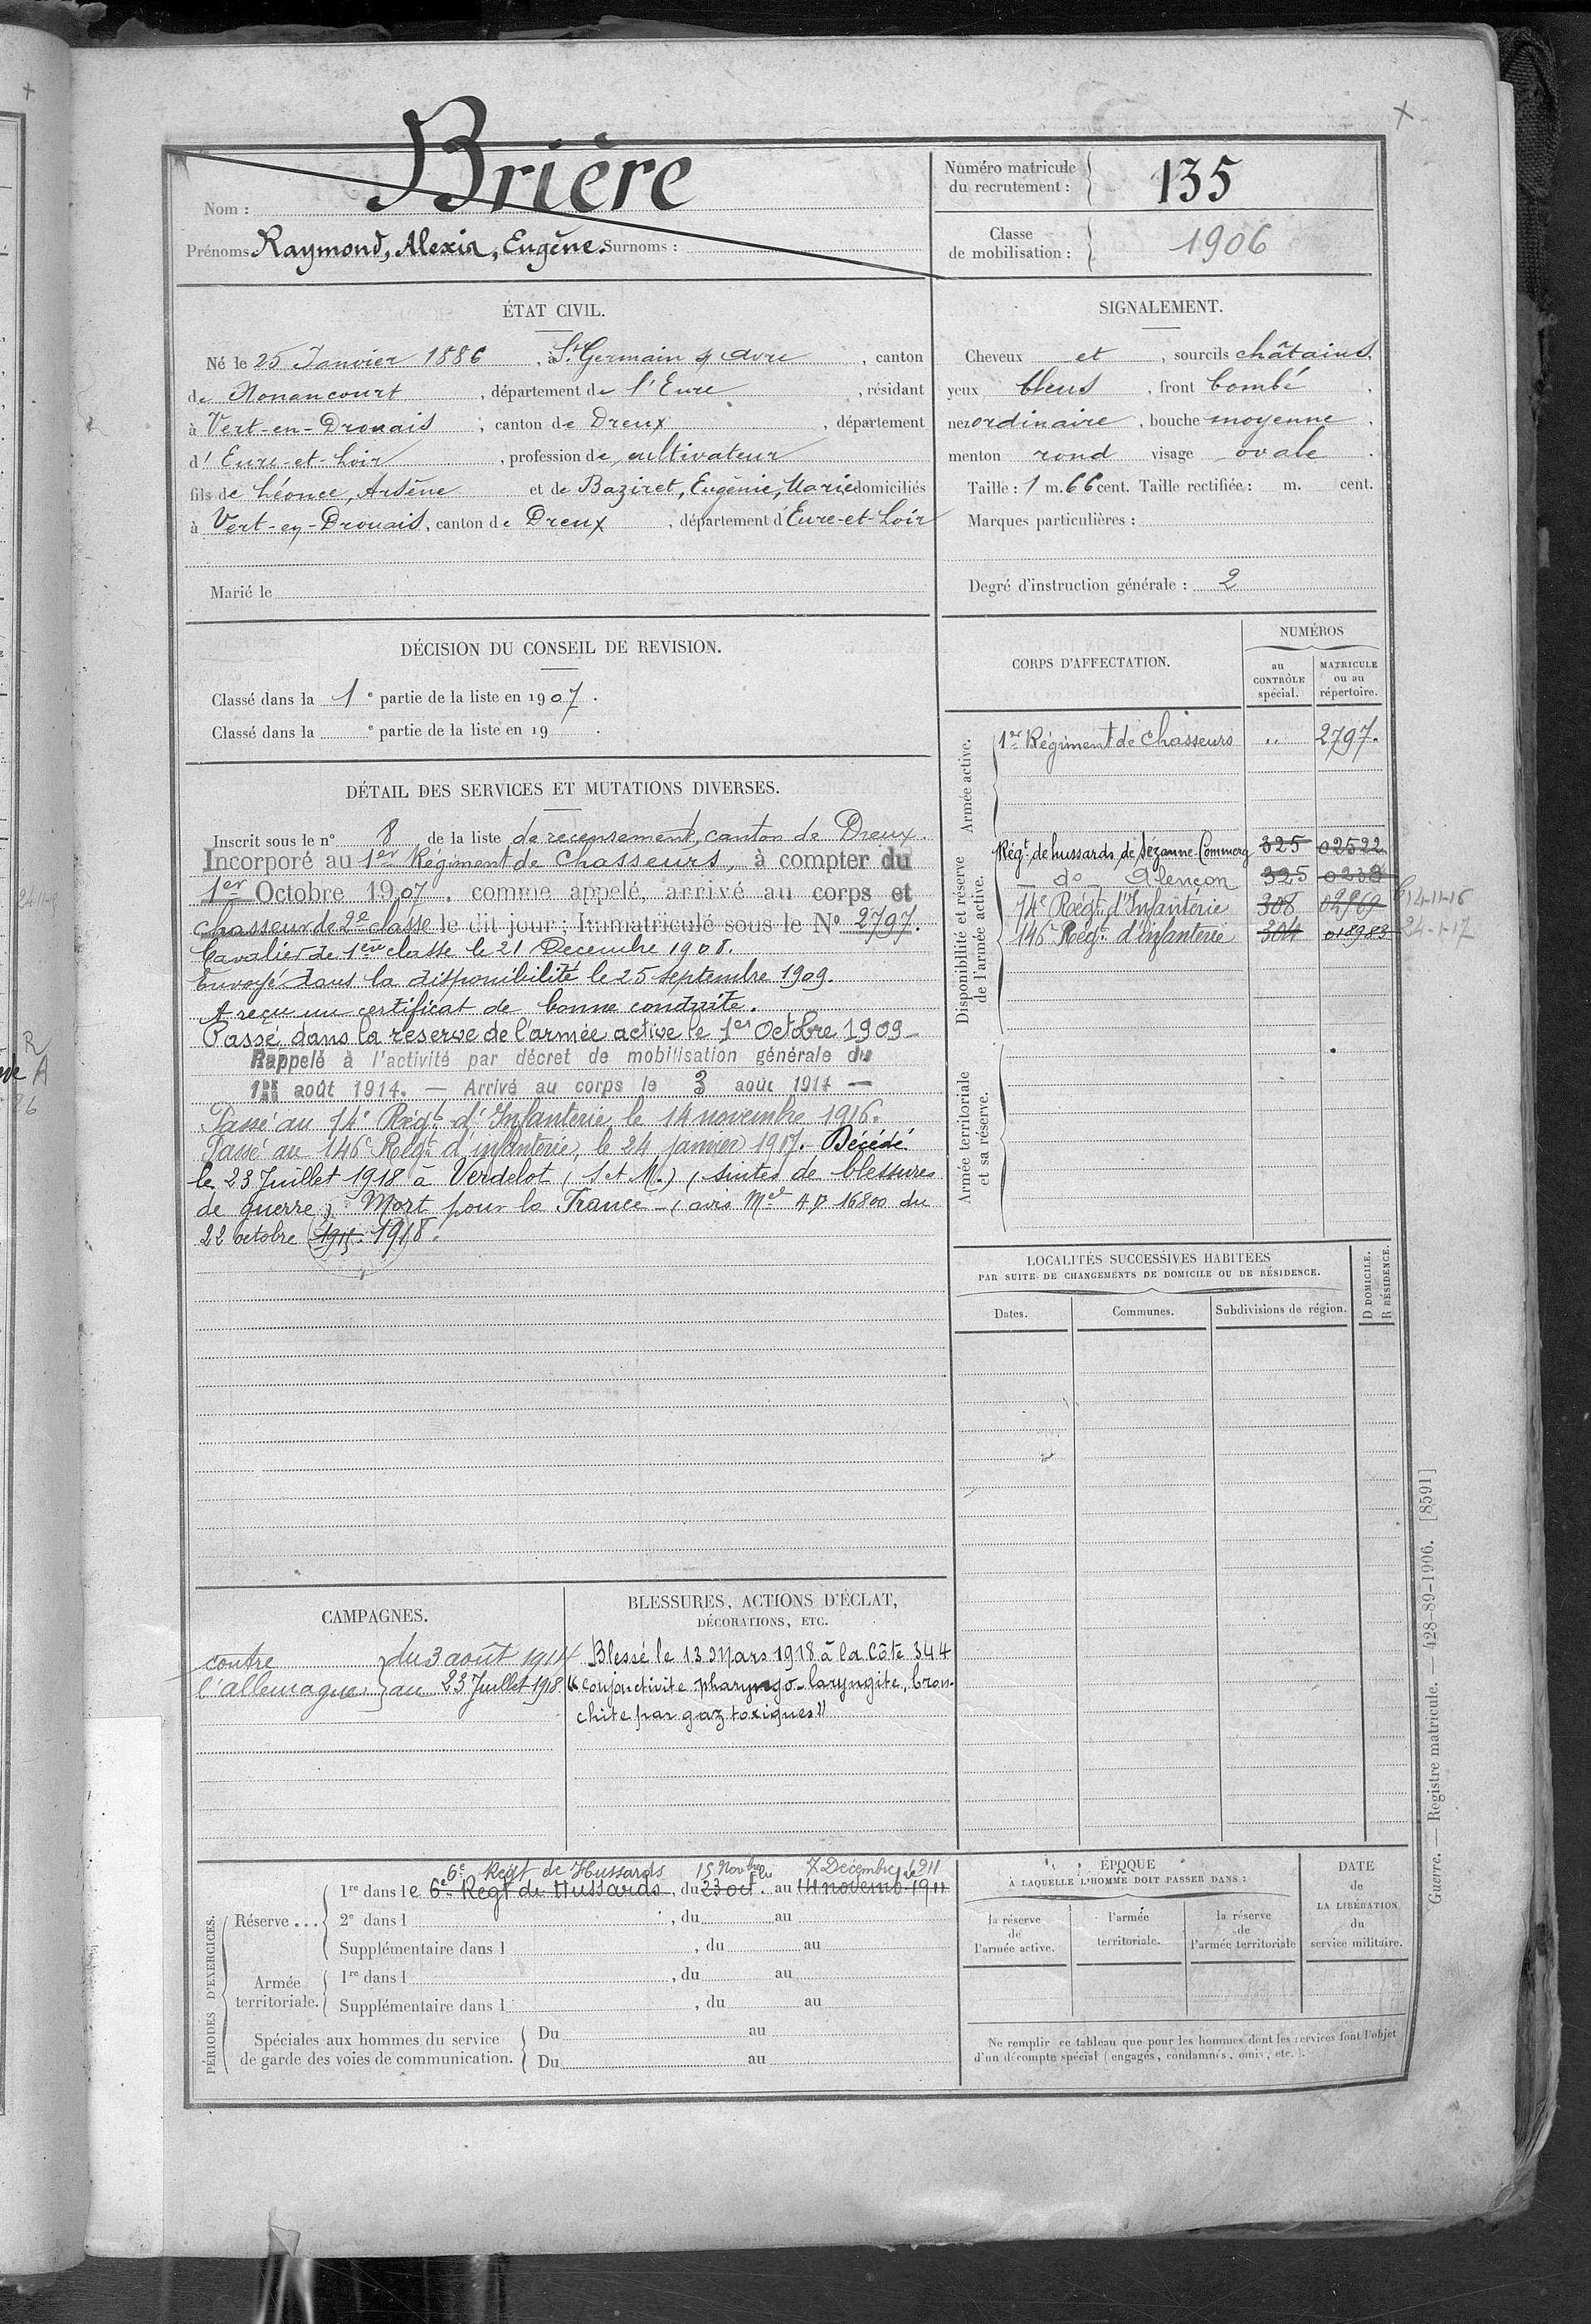 Brière
Nom :
Prénoms Raymond, Alexis, Eugène. Surnoms :
Numéro matricule
du recrutement :
135
Classe
de mobilisation :
1906
ÉTAT CIVIL.
Né le 25 Janvier 1886, à St Germain s/ Avre, canton
de Nonancourt, département de l'Eure, résidant
à Vert-en-Drouais, canton de Dreux, département
d'Eure-et-Loir, profession de cultivateur
fils de Léonce, Arsène et de Baziret, Eugénie, Marie domiciliés
à Vert-en-Drouais, canton de Dreux, département d'Eure-et-Loir
Marié le
SIGNALEMENT.
Cheveux et, sourcils châtains.
yeux bleus, front bombé,
nez ordinaire, bouche moyenne,
menton rond visage ovale.
Taille : 1 m. 66 cent. Taille rectifiée : m. cent.
Marques particulières :
Degré d'instruction générale : 2
DÉCISION DU CONSEIL DE REVISION.
Classé dans la 1e partie de la liste en 1907.
Classé dans la e partie de la liste en 19 .
DÉTAIL DES SERVICES ET MUTATIONS DIVERSES.
Inscrit sous le n° 8 de la liste de recensement, canton de Dreux.
Incorporé au 1er Régiment de Chasseurs, à compter du
1er Octobre 1907, comme appelé, arrivé au corps et
chasseur de 2e classe le dit jour ; Immatriculé sous le N° 2797.
Cavalier de 1ère classe le 21 Décembre 1908.
Envoyé dans la disponibilité le 25 septembre 1909.
A reçu un certificat de bonne conduite.
Passé dans la réserve de l'armée active le 1er Octobre 1909
Rappelé à l'activité par décret de mobilisation générale du
1er août 1914. — Arrivé au corps le 3 août 1914 —
Passé au 74e Régt d'Infanterie le 14 novembre 1916.
Passé au 146e Régt d'infanterie, le 24 janvier 1917. Décédé
le 23 Juillet 1918 à Verdelot (S. et M.) (suites de blessures
de guerre). Mort pour la France — (avis Mel 16800 du
22 octobre 1915. 1918.
CORPS D'AFFECTATION.
NUMÉROS
au
CONTRÔLE
spécial.
MATRICULE
ou au
répertoire.
Armée active.
1er Régiment de Chasseurs " 2797.
Disponibilité et réserve
de l'armée active.
Régt de hussards de Sézanne-Commerg 325 02522
do Alençon 325
74e Régt d'Infanterie 308 14-11-16
146e Régt d'infanterie 304 018983 24-1-17
Armée territoriale
et sa réserve.
LOCALITÉS SUCCESSIVES HABITÉES
PAR SUITE DE CHANGEMENTS DE DOMICILE OU DE RÉSIDENCE.
Dates.
Communes.
Subdivisions de région.
D DOMICILE.
R RÉSIDENCE.
CAMPAGNES.
contre } du 3 août 1914
l'allemagne } au 23 Juillet 1918
BLESSURES, ACTIONS D'ÉCLAT,
DÉCORATIONS, ETC.
Blessé le 13 Mars 1918 à la Côte 344
"conjonctivite pharyngo-laryngite, bron-
chite par gaz toxiques"
PÉRIODES D'EXERCICES.
6e Régt de Hussards 15 Novbre 7 Décembre 1911
Réserve... 1re dans le 6e Régt de Hussards, du 23 oct. au 14 novemb. 1911
2e dans l , du au
Supplémentaire dans l , du au
Armée
territoriale.
1re dans l , du au
Supplémentaire dans l , du au
Spéciales aux hommes du service
de garde des voies de communication.
Du au
Du au
ÉPOQUE
À LAQUELLE L'HOMME DOIT PASSER DANS :
la réserve
de
l'armée active.
l'armée
territoriale.
la réserve
de
l'armée territoriale
DATE
de
LA LIBÉRATION
du
service militaire.
Ne remplir ce tableau que pour les hommes dont les services font l'objet
d'un décompte spécial (engagés, condamnés, omis, etc.).
Guerre. — Registre matricule. — 428-89-1906. [8591]